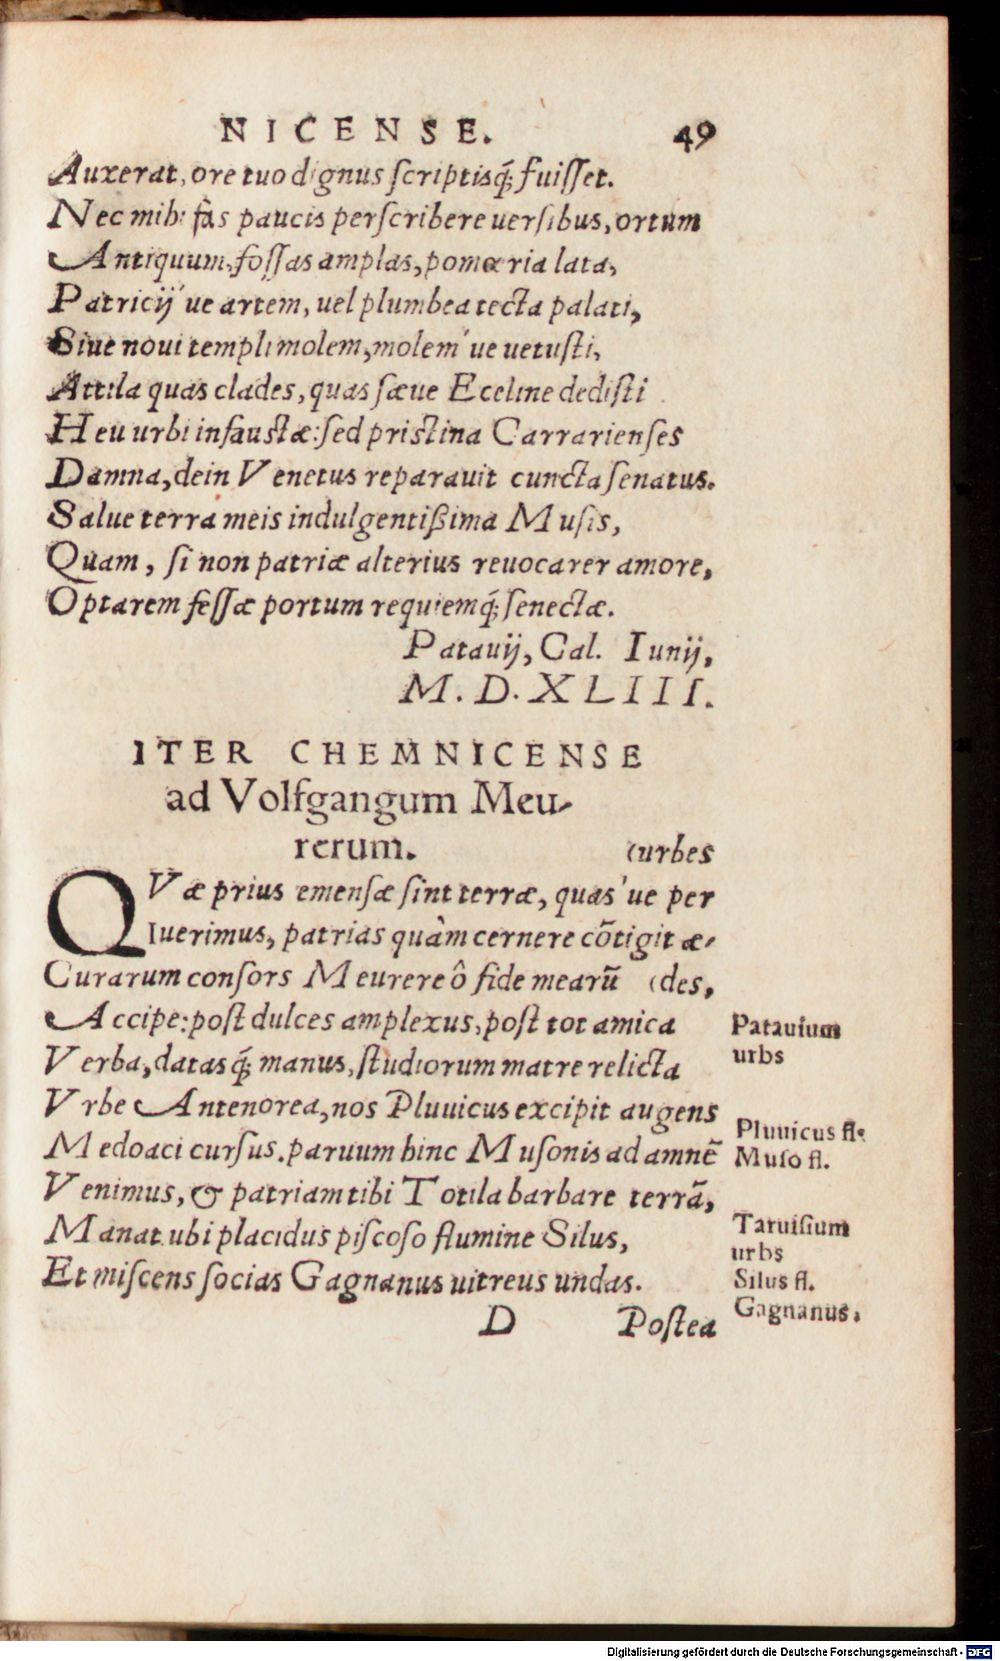 NICENSE. 49
Auxerat, ore tuo dignus ſcriptisq́; fuiſſet.
Nec mihi fas paucis perſcribere uerſibus, ortum
Antiquum, foſſas amplas, pomœria lata,
Patricij́ ue artem, uel plumbea tecta palati,
Siue noui templi molem, molem ́ue uetuſti,
Attila quas clades, quas ſæue Eceline dediſti
Heu urbi infauſtæ: ſed priſtina Carrarienſes
Damna, dein Venetus reparauit cuncta ſenatus.
Salue terra meis indulgentißima Muſis,
Quam, ſi non patriæ alterius reuocarer amore,
Optarem feſſæ portum requiemq́; ſenectæ.
Patauij, Cal. Iunij,
M. D. XLIII.
ITER CHEMNICENSE
ad Volfgangum Meu-
rerum. (urbes
QVæ prius emenſæ ſint terræ, quas ́ue per
Iuerimus, patrias quàm cernere cõtigit æ-
Curarum conſors Meurere ô fide mearũ (des,
Accipe: poſt dulces amplexus, poſt tot amica
Verba, datasq́; manus, ſtudiorum matre relicta
Vrbe Antenorea, nos Pluuicus excipit augens
Medoaci curſus. paruum hinc Muſonis ad amnẽ
Venimus, & patriam tibi Totila barbare terrã,
Manat ubi placidus piſcoſo flumine Silus,
Et miſcens ſocias Gagnanus uitreus undas.
D Poſtea
Patauium
urbs
Pluuicus fl.
Muſo fl.
Taruiſium
urbs
Silus fl.
Gagnanus.
Digitalisierung gefördert durch die Deutsche Forschungsgemeinschaft - DFG